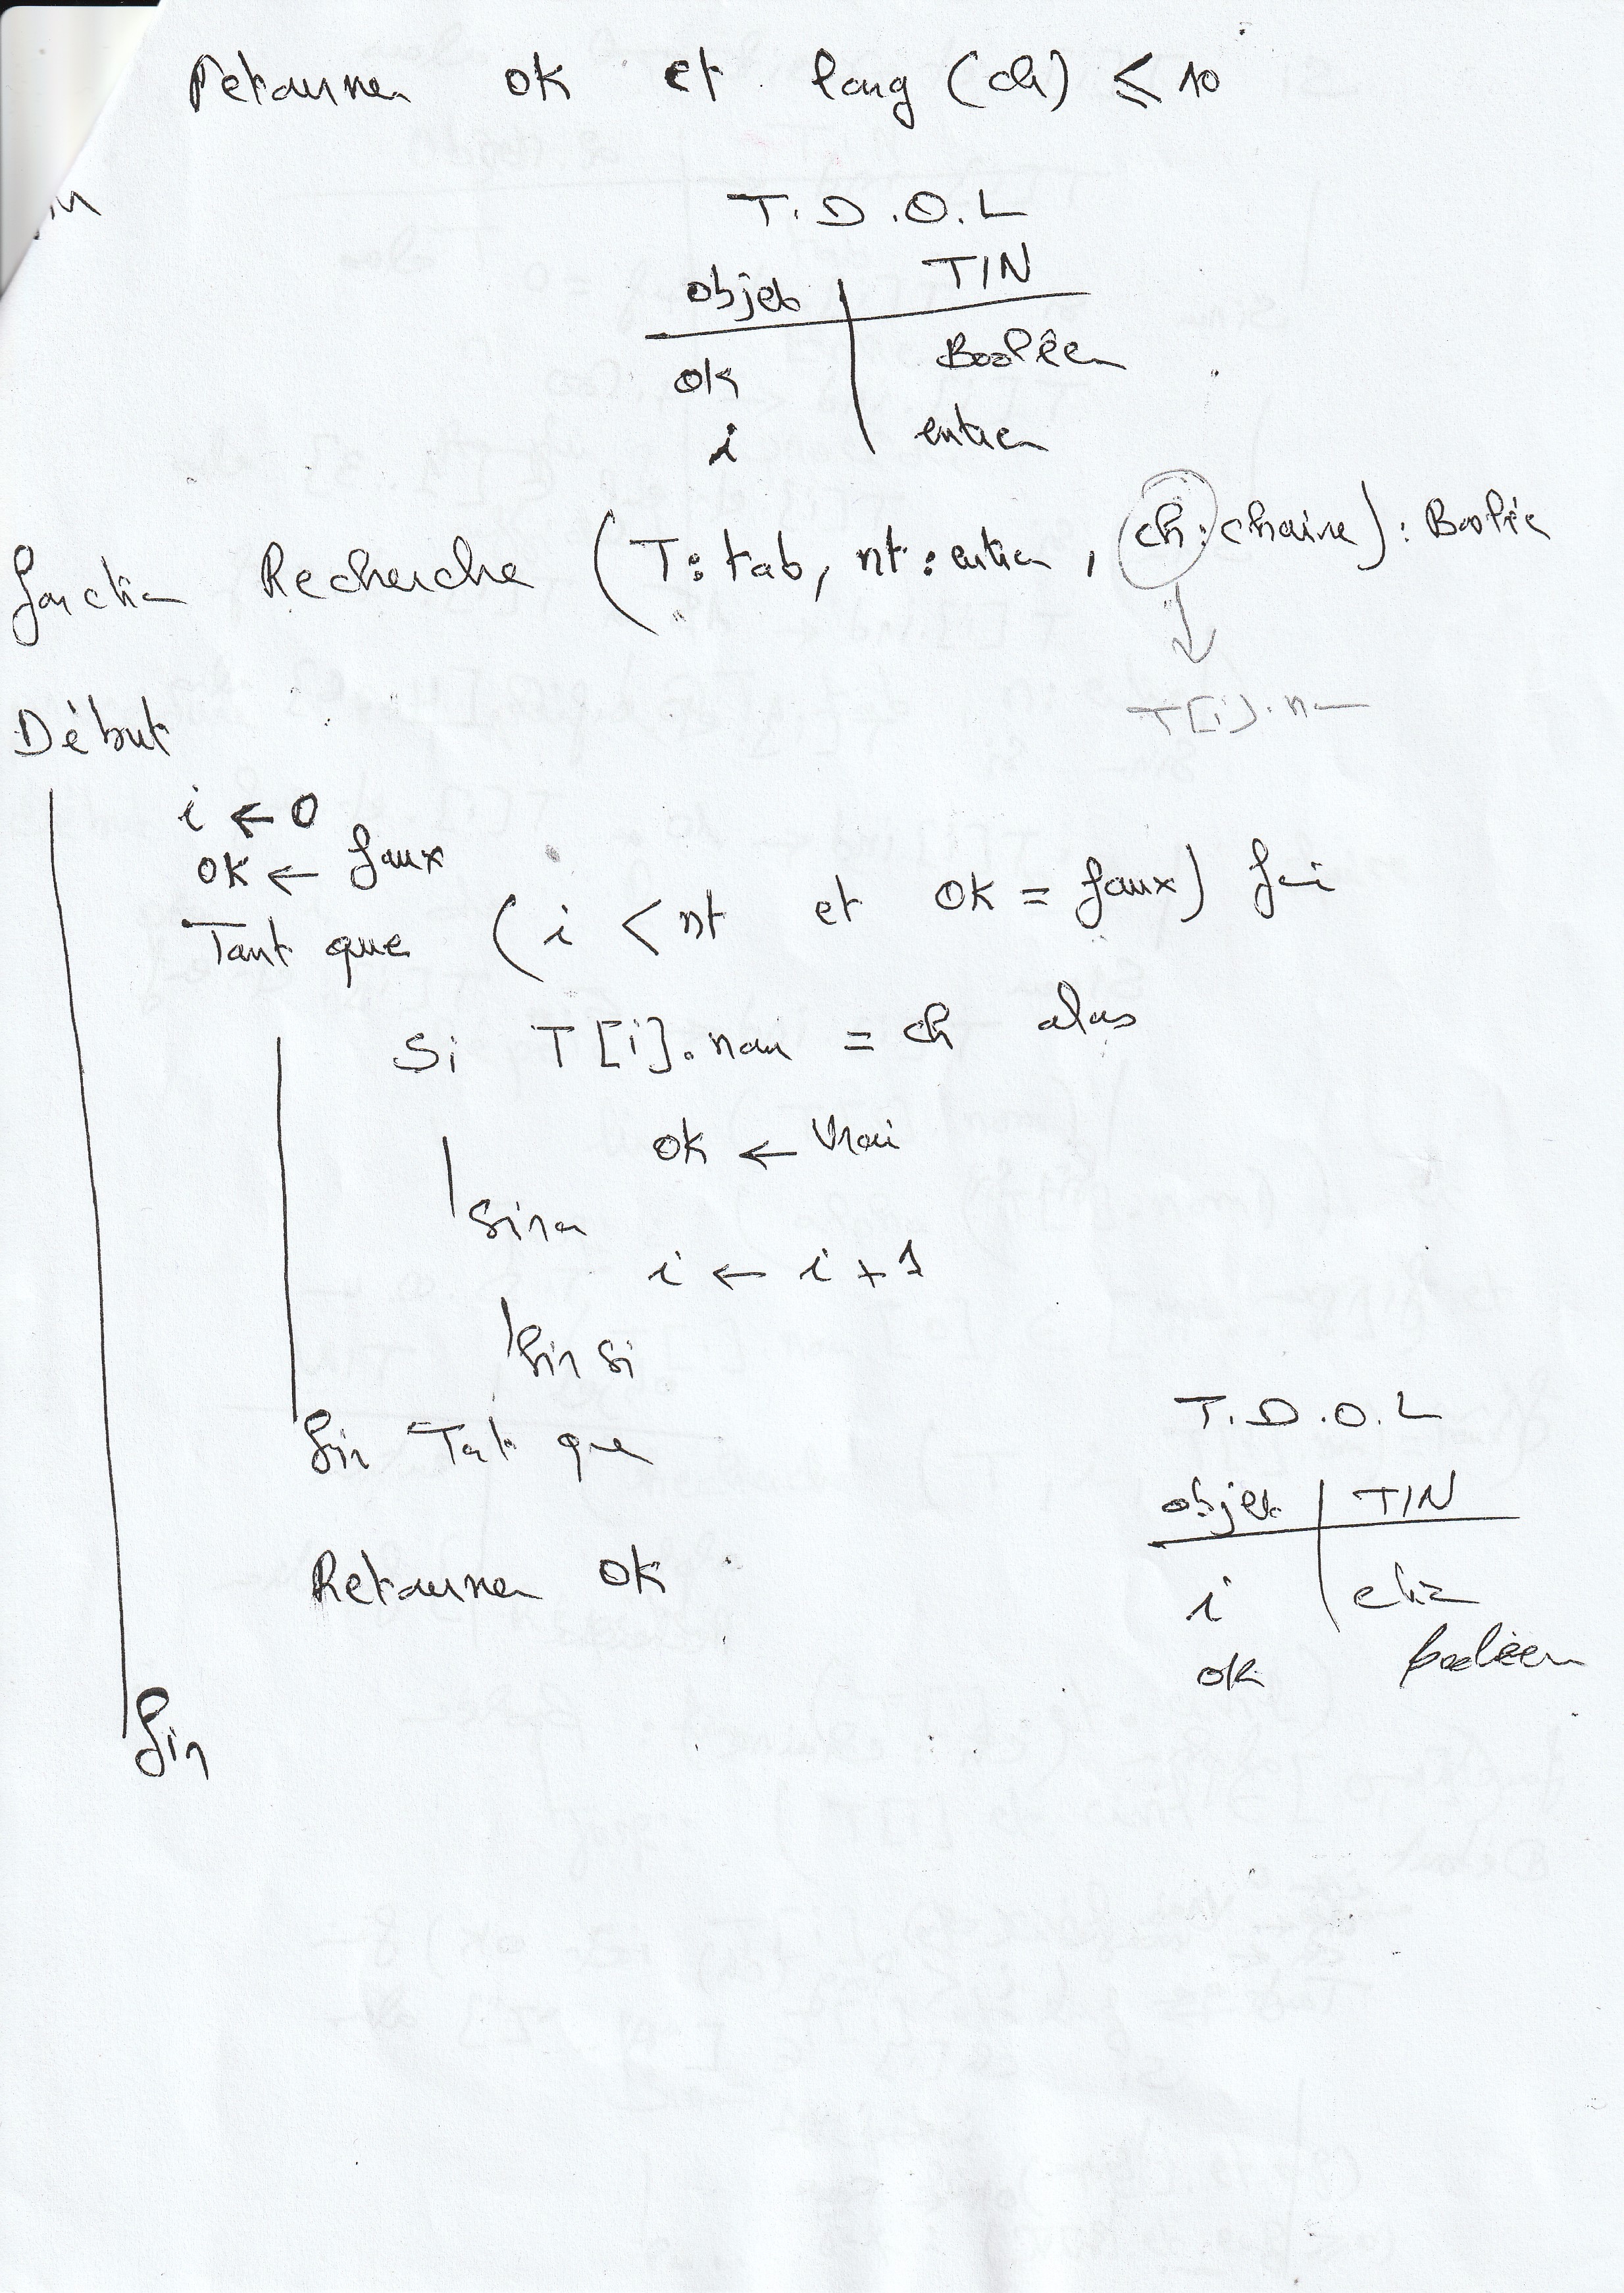 retourner ok et long (ch) ≤ 10
T.D.O.L
objet | T/N
ok | Booléen
i | entier
fonction Recherche (T: tab, nt: entier, ch: chaine): Booléen
T[i].nom
Début
i ← 0
ok ← faux
Tant que (i < nt et ok = faux) faire
Si T[i].nom = ch alors
ok ← Vrai
sinon
i ← i + 1
fin si
fin Tant que
T.D.O.L
objet | T/N
i | entier
ok | booléen
Retourner ok
fin